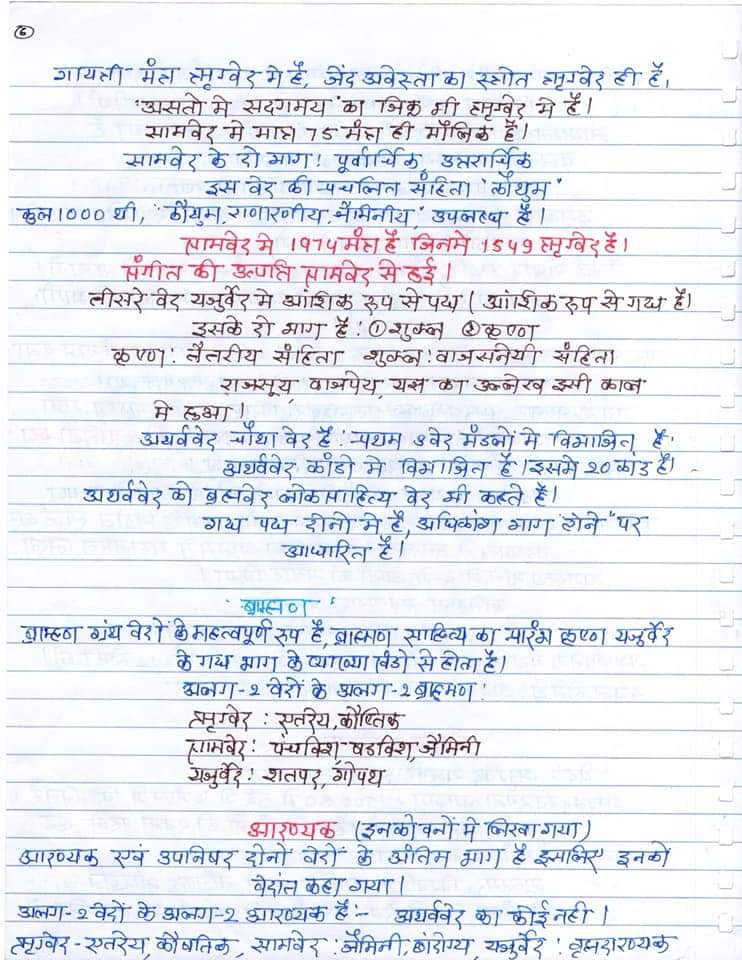 6
गायत्री मंत्र ऋग्वेद मे है, जेंद अवेस्ता का स्त्रोत ऋग्वेद ही है,
"असतो मे सदगमय" का जिक्र भी ऋग्वेद मे है।
सामवेद मे मात्र 75 मंत्र ही मौलिक है।
सामवेद के दो भाग: पूर्वार्चिक, उत्तरार्चिक
इस वेद की प्रचलित संहिता "कौथुम"
कुल 1000 थी, कौथुम, राणारणीय, जैमिनीय, उपलब्ध है।
सामवेद मे 1974 मंत्र है जिनमे 1549 ऋग्वेद है।
संगीत की उत्पत्ति सामवेद से हुई।
तीसरे वेद यजुर्वेद मे आंशिक रुप से पद्य ( आंशिक रुप से गद्य है।
इसके दो भाग है: ① शुक्ल ② कृष्ण
कृष्ण: तैत्तरीय संहिता शुक्ल: वाजसनेयी संहिता
राजसूय, वाजपेय, यज्ञ का उल्लेख इसी काल
मे हुआ।
अथर्ववेद चौथा वेद है: प्रथम 2 वेद मंडलो मे विभाजित है
अथर्ववेद कांडो मे विभाजित है। इसमे 20 कांड है।
अथर्ववेद को ब्रह्मवेद लोकसाहित्य वेद भी कहते है।
गद्य पद्य दोनो मे है, अधिकांश भाग "टोने" पर
आधारित है।
ब्राह्मण
ब्राह्मण ग्रंथ वेदों के महत्वपूर्ण रुप है, ब्राह्मण साहित्य का प्रारंभ कृष्ण यजुर्वेद
के गद्य भाग के व्याख्या खंडो से होता है।
अलग-2 वेदों के अलग-2 ब्राह्मण:
ऋग्वेद: एतरेय, कौष्तिक
सामवेद: पंचविश, षडविश, जैमिनी
यजुर्वेद: शतपद, गोपथ
आरण्यक (इनको वनो मे लिखा गया)
आरण्यक एवं उपनिषद दोनो वेदों के अंतिम भाग है इसलिए इनको
वेदांत कहा गया।
अलग-2 वेदों के अलग-2 आरण्यक है:- अथर्ववेद का कोई नही।
ऋग्वेद - एतरेय, कौषतिक, सामवेद: जैमिनी, छांदोग्य, यजुर्वेद: वृहदारण्यक